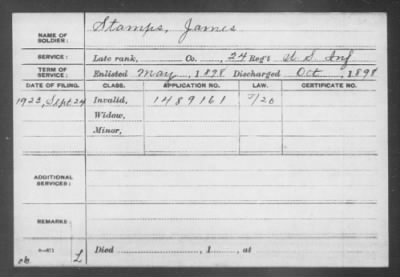 Stamps, James
NAME OF SOLDIER:
SERVICE: Late rank, Co., 24 Reg't U. S. Inf
TERM OF SERVICE: Enlisted May, 1898 Discharged Oct, 1898
DATE OF FILING. CLASS. APPLICATION NO. LAW. CERTIFICATE NO.
1923, Sept 24 Invalid, 1489161 7/20
Widow,
Minor,
ADDITIONAL SERVICES:
REMARKS:
Died , 1 , at